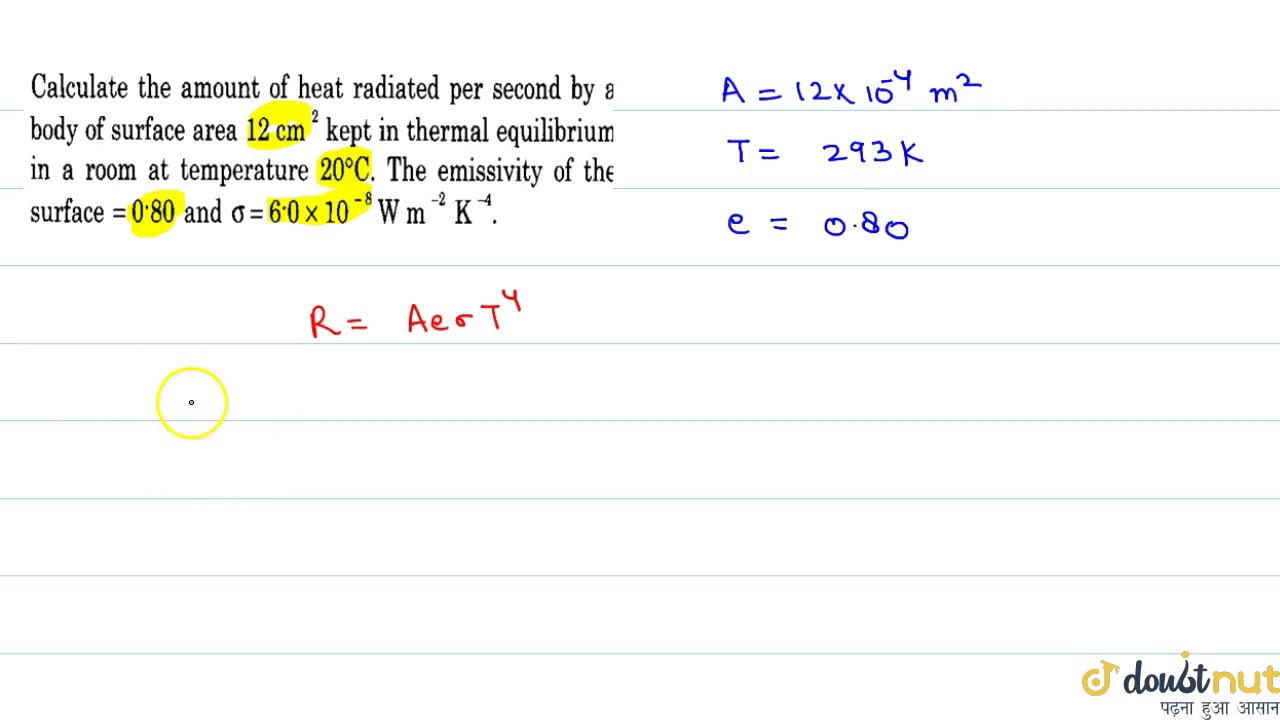 Calculate the amount of heat radiated per second by a
body of surface area 12 cm² kept in thermal equilibrium
in a room at temperature 20°C. The emissivity of the
surface = 0·80 and σ = 6·0 × 10⁻⁸ W m⁻² K⁻⁴.
A = 12 × 10⁻⁴ m²
T = 293 K
e = 0.80
R = A e σ T⁴
doubtnut
पढ़ना हुआ आसान